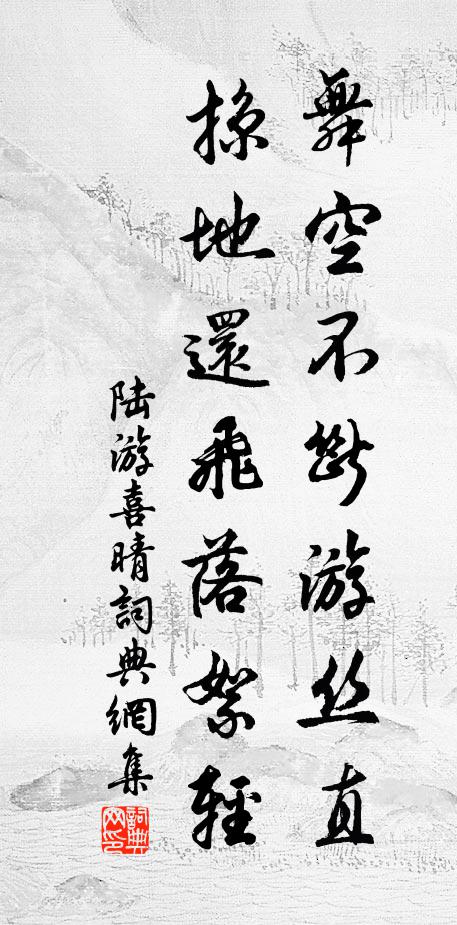 舞空不斷游丝直
掠地還飛落絮輕
陆游喜晴詞典網集
詞典
网印